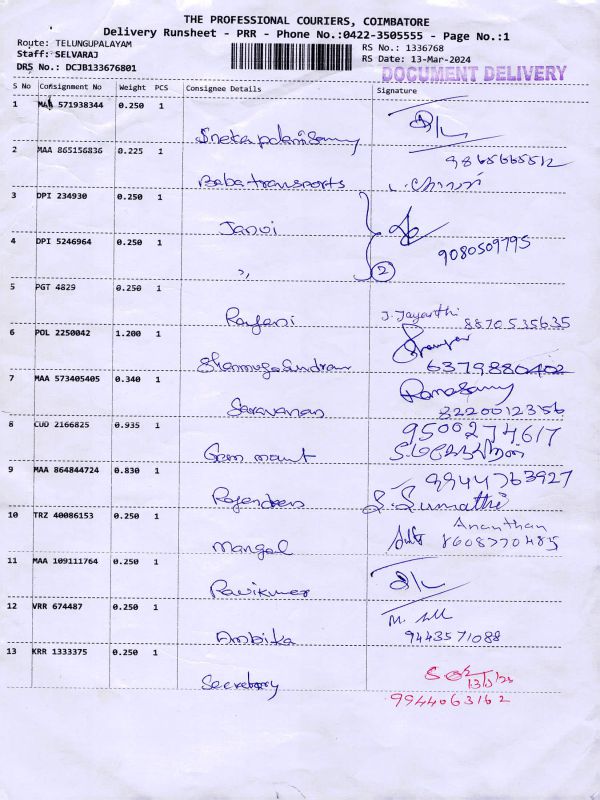 THE PROFESSIONAL COURIERS, COIMBATORE
Delivery Runsheet - PRR - Phone No.:0422-3505555 - Page No.:1
Route: TELUNGUPALAYAM
Staff: SELVARAJ
DRS No.: DCJB133676801
RS No.: 1336768
RS Date: 13-Mar-2024
DOCUMENT DELIVERY
S No Consignment No Weight PCS Consignee Details Signature
1 MAA 571938344 0.250 1
2 MAA 865156836 0.225 1
9865665512
Baba transports
3 DPI 234930 0.250 1
Janvi
4 DPI 5246964 0.250 1
9080509795
" 2
5 PGT 4829 0.250 1
Rajani J. Jayanthi
8870535635
6 POL 2250042 1.200 1
6379880402
7 MAA 573405405 0.340 1
Saravanan Ramasamy
8220012356
8 CUD 2166825 0.935 1
9500274617
9 MAA 864844724 0.830 1
9944763927
S. Sumathi
10 TRZ 40086153 0.250 1
Ananthan
Mangal 8608770485
11 MAA 109111764 0.250 1
Ravikumar
12 VRR 674487 0.250 1
Ambika 9443571088
13 KRR 1333375 0.250 1
Secretary
9944063162